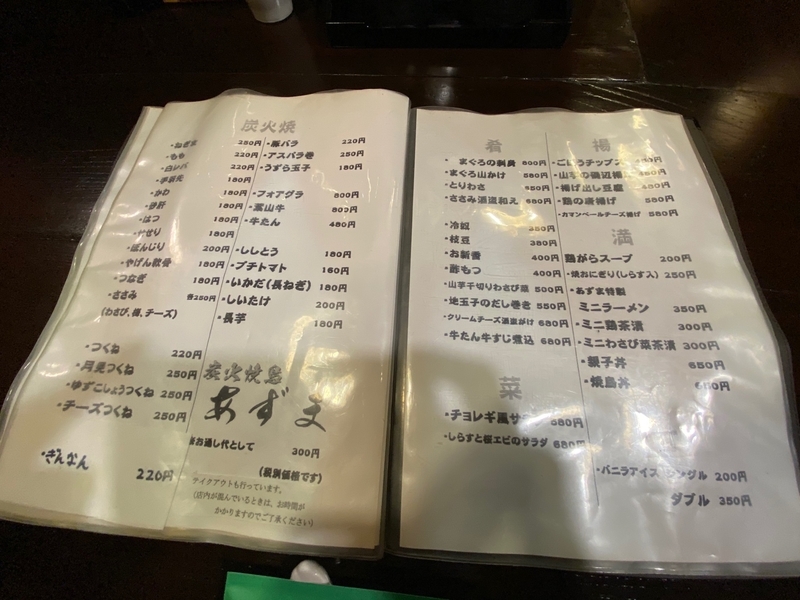 炭火焼
・ねぎま 250円
・もも 220円
・白レバ 220円
180円
・かわ 180円
・砂肝 180円
・はつ 180円
・せせり 180円
・ぼんじり 200円
・やげん軟骨 180円
・つなぎ 180円
・ささみ 各250円
(わさび、梅、チーズ)
・つくね 220円
・月見つくね 250円
・ゆずこしょうつくね 250円
・チーズつくね 250円
・ぎんなん 220円
・豚バラ 220円
・アスパラ巻 250円
・うずら玉子 180円
・フォアグラ 800円
・葉山牛 800円
・牛たん 480円
・ししとう 180円
・プチトマト 160円
・いかだ(長ねぎ) 180円
・しいたけ 200円
・長芋 180円
炭火焼鳥
あずま
※お通し代として
300円
(税別価格です)
テイクアウトも行っています。
(店内が混んでいるときは、お時間が
かかりますのでご了承ください)
肴
・まぐろの刺身 800円
・まぐろ山かけ 580円
・とりわさ 550円
・ささみ酒盗和え 680円
・冷奴 350円
・枝豆 380円
・お新香 400円
・酢もつ 400円
・山芋千切りわさび漬 500円
・地玉子のだし巻き 550円
・クリームチーズ酒盗がけ 680円
・牛たん牛すじ煮込 680円
菜
・チョレギ風サラダ 580円
・しらすと桜エビのサラダ 680円
揚
・ごぼうチップス 480円
・山芋の磯辺揚
・揚げ出し豆腐
・鶏の唐揚げ 580円
・カマンベールチーズ揚げ 580円
満
鶏がらスープ 200円
・焼おにぎり(しらす入) 250円
・あずま特製
ミニラーメン 350円
・ミニ鶏茶漬 300円
・ミニわさび菜茶漬 300円
・親子丼 650円
・焼鳥丼
・バニラアイス シングル 200円
ダブル 350円